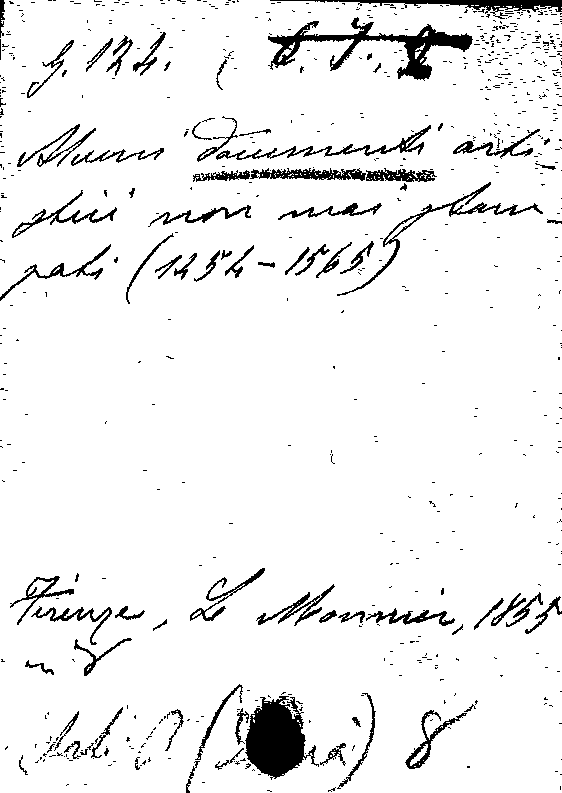 G. 124.
Alcuni documenti arti-
stici non mai stam-
pati (1454-1565)
Firenze, Le Monnier, 1855
in 8
8